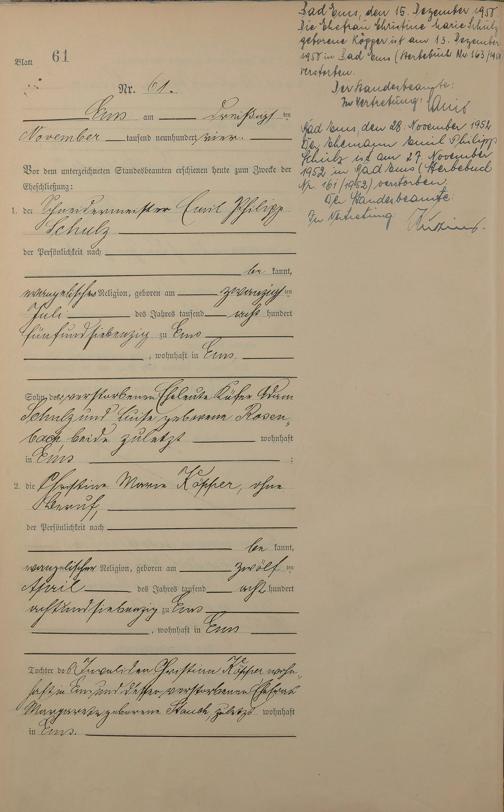 Blatt 61
Nr. 61.
Ems am Dreißigsten
November tausend neunhundert vier
Vor dem unterzeichneten Standesbeamten erschienen heute zum Zwecke der
Eheschließung:
1. der Schneidermeister Emil Philipp
Schulz
der Persönlichkeit nach
be kannt,
evangelischer Religion, geboren am zwanzigsten
Juli des Jahres tausend acht hundert
fünfundsiebenzig zu Ems
, wohnhaft in Ems
Sohn der verstorbenen Eheleute Küfer Adam
Schulz und Luise geborene Rosen-
bach beide zuletzt wohnhaft
in Ems ;
2. die Christine Marie Köpper, ohne
Beruf,
der Persönlichkeit nach
be kannt,
evangelischer Religion, geboren am zwölften
April des Jahres tausend acht hundert
achtundsiebenzig zu Ems
, wohnhaft in Ems
Tochter des Invaliden Christian Köpper wohn-
haft in Ems und dessen verstorbenen Ehefrau
Margarete geborene Stauch, zuletzt wohnhaft
in Ems.
Bad Ems, den 15. Dezember 1958
Die Ehefrau Christine Marie Schulz
geborene Köpper ist am 13. Dezember
1958 in Bad Ems (Sterbebuch Nr. 163/1958)
verstorben.
Der Standesbeamte:
In Vertretung:
Bad Ems, den 28. November 1952
Der Ehemann Emil Philipp
Schulz ist am 27. November
1952 in Bad Ems (Sterbebuch
Nr. 161/1952) verstorben
Der Standesbeamte
In Vertretung